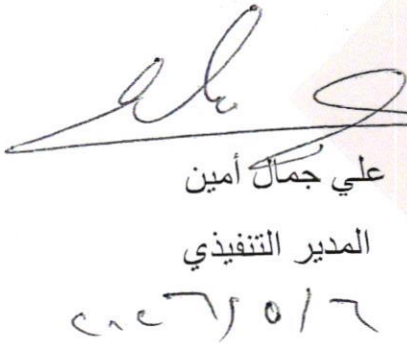 علي جمال أمين
المدير التنفيذي
٢٠٢٦/٥/٦